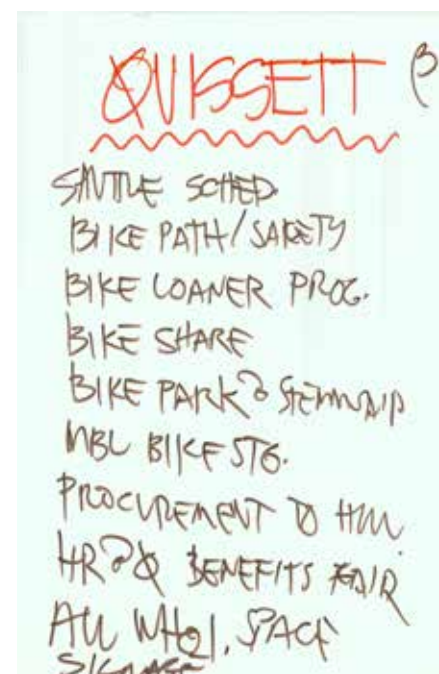 QUISSETT
SHUTTLE SCHED.
BIKE PATH/SAFETY
BIKE LOANER PROG.
BIKE SHARE
BIKE PARK @
MBL BIKE STG.
PROCUREMENT TO
HR @ BENEFITS FAIR
ALL WHOI. SPACE
SIGNAGE